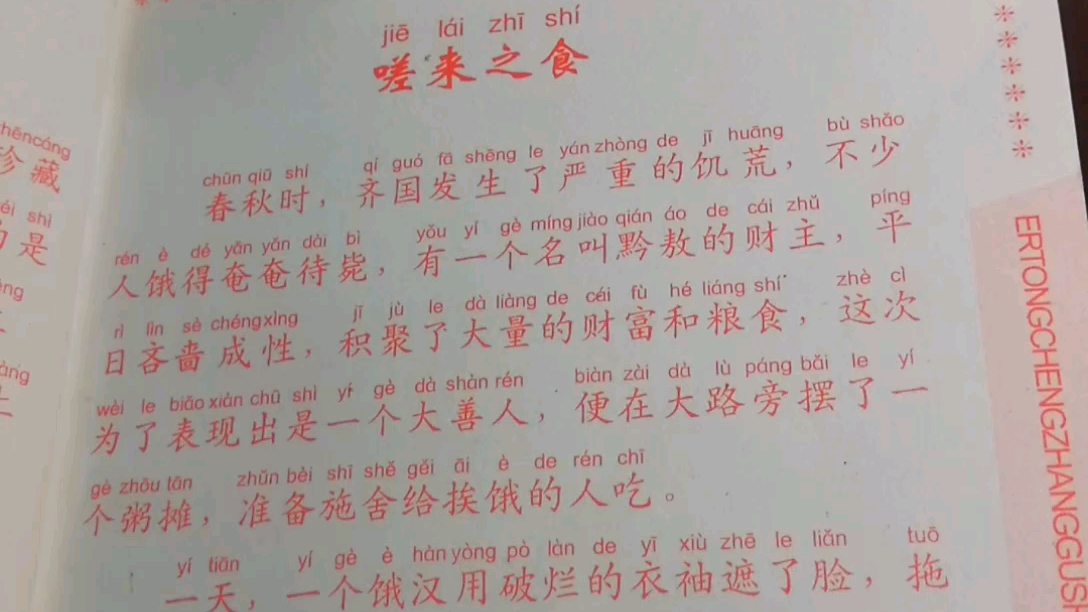 jiē lái zhī shí
嗟来之食
chūn qiū shí qí guó fā shēng le yán zhòng de jī huāng bù shǎo
春秋时，齐国发生了严重的饥荒，不少
rén è dé yǎn yǎn dài bì yǒu yí gè míng jiào qián áo de cái zhǔ píng
人饿得奄奄待毙，有一个名叫黔敖的财主，平
rì lìn sè chéng xìng jī jù le dà liàng de cái fù hé liáng shí zhè cì
日吝啬成性，积聚了大量的财富和粮食，这次
wèi le biǎo xiàn chū shì yí gè dà shàn rén biàn zài dà lù páng bǎi le yí
为了表现出是一个大善人，便在大路旁摆了一
gè zhōu tān zhǔn bèi shī shě gěi āi è de rén chī
个粥摊，准备施舍给挨饿的人吃。
yí tiān yí gè è hàn yòng pò làn de yī xiù zhē le liǎn tuō
一天，一个饿汉用破烂的衣袖遮了脸，拖
珍藏
是
ERTONGCHENGZHANGGUSH